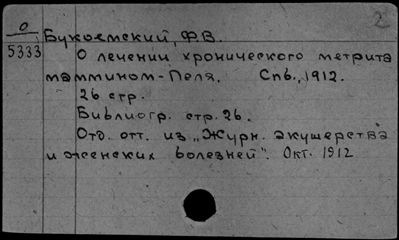 О
5333
2
Букоемский, Ф.В.
О лечении хронического метрита
маммином-Пеля. Спб., 1912.
26 стр.
Библиогр. стр. 26.
Отд. отт. из „Журн. акушерства
и женских болезней". Окт. 1912